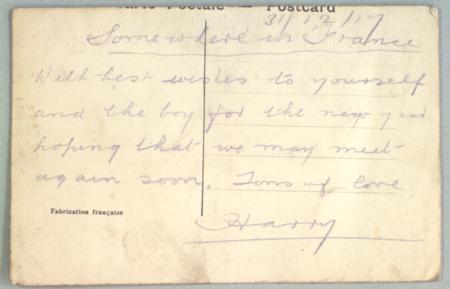 Carte Postale — Postcard
31/12/17
Somewhere in France
With best wishes to yourself
and the boy for the new year
hoping that we may meet
again soon. Tons of love
Harry
Fabrication française